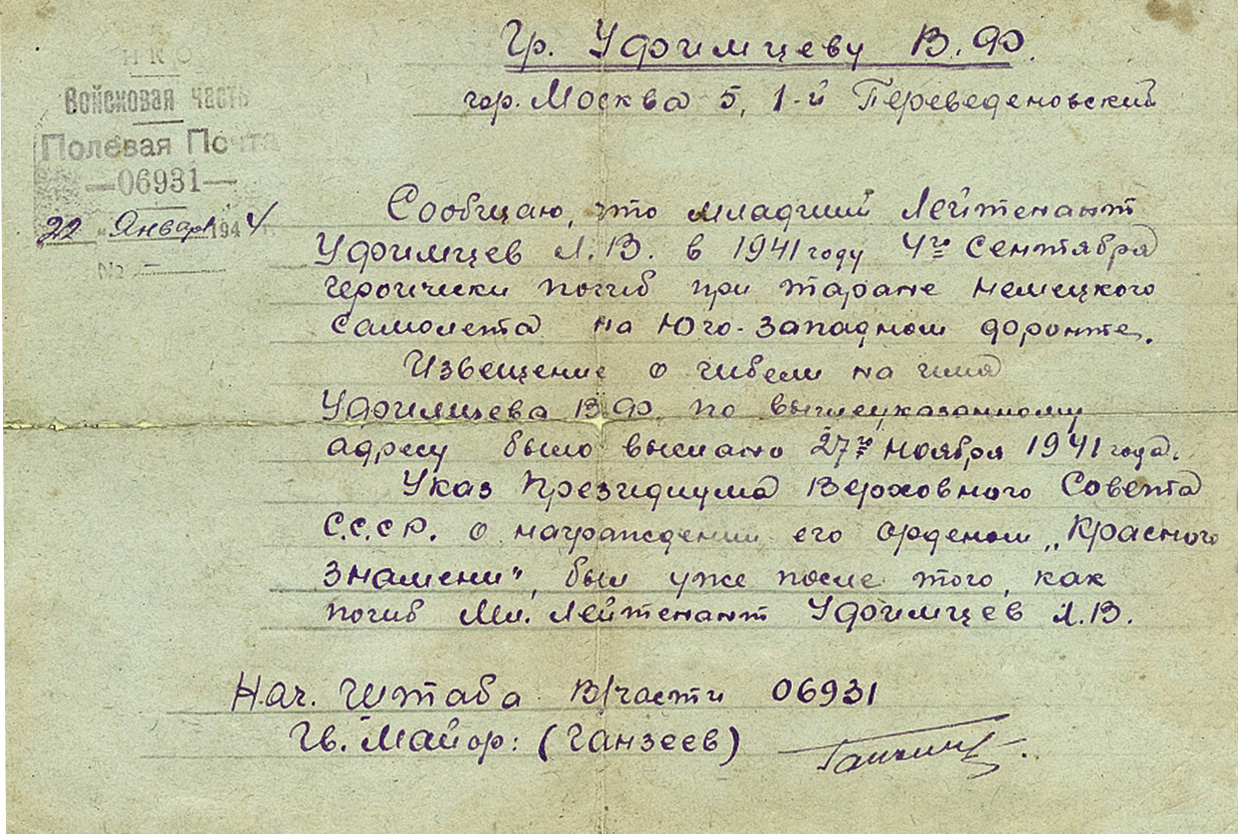 Гр. Уфимцеву В.Ф.
гор. Москва 5, 1-й Переведеновский
НКО
Войсковая часть
Полевая Почта
—06931—
22 " Января 1944 г.
№ —
Сообщаю, что младший Лейтенант
Уфимцев Л.В. в 1941 году 4го Сентября
героически погиб при таране немецкого
самолета на Юго-Западном фронте.
Извещение о гибели на имя
Уфимцева В.Ф. по вышеуказанному
адресу было выслано 27го ноября 1941 года.
Указ Президиума Верховного Совета
С.С.С.Р. о награждении его орденом „Красного
Знамени", был уже после того, как
погиб Мл. Лейтенант Уфимцев Л.В.
Нач. Штаба В/части 06931
Гв. Майор: (Ганзеев)